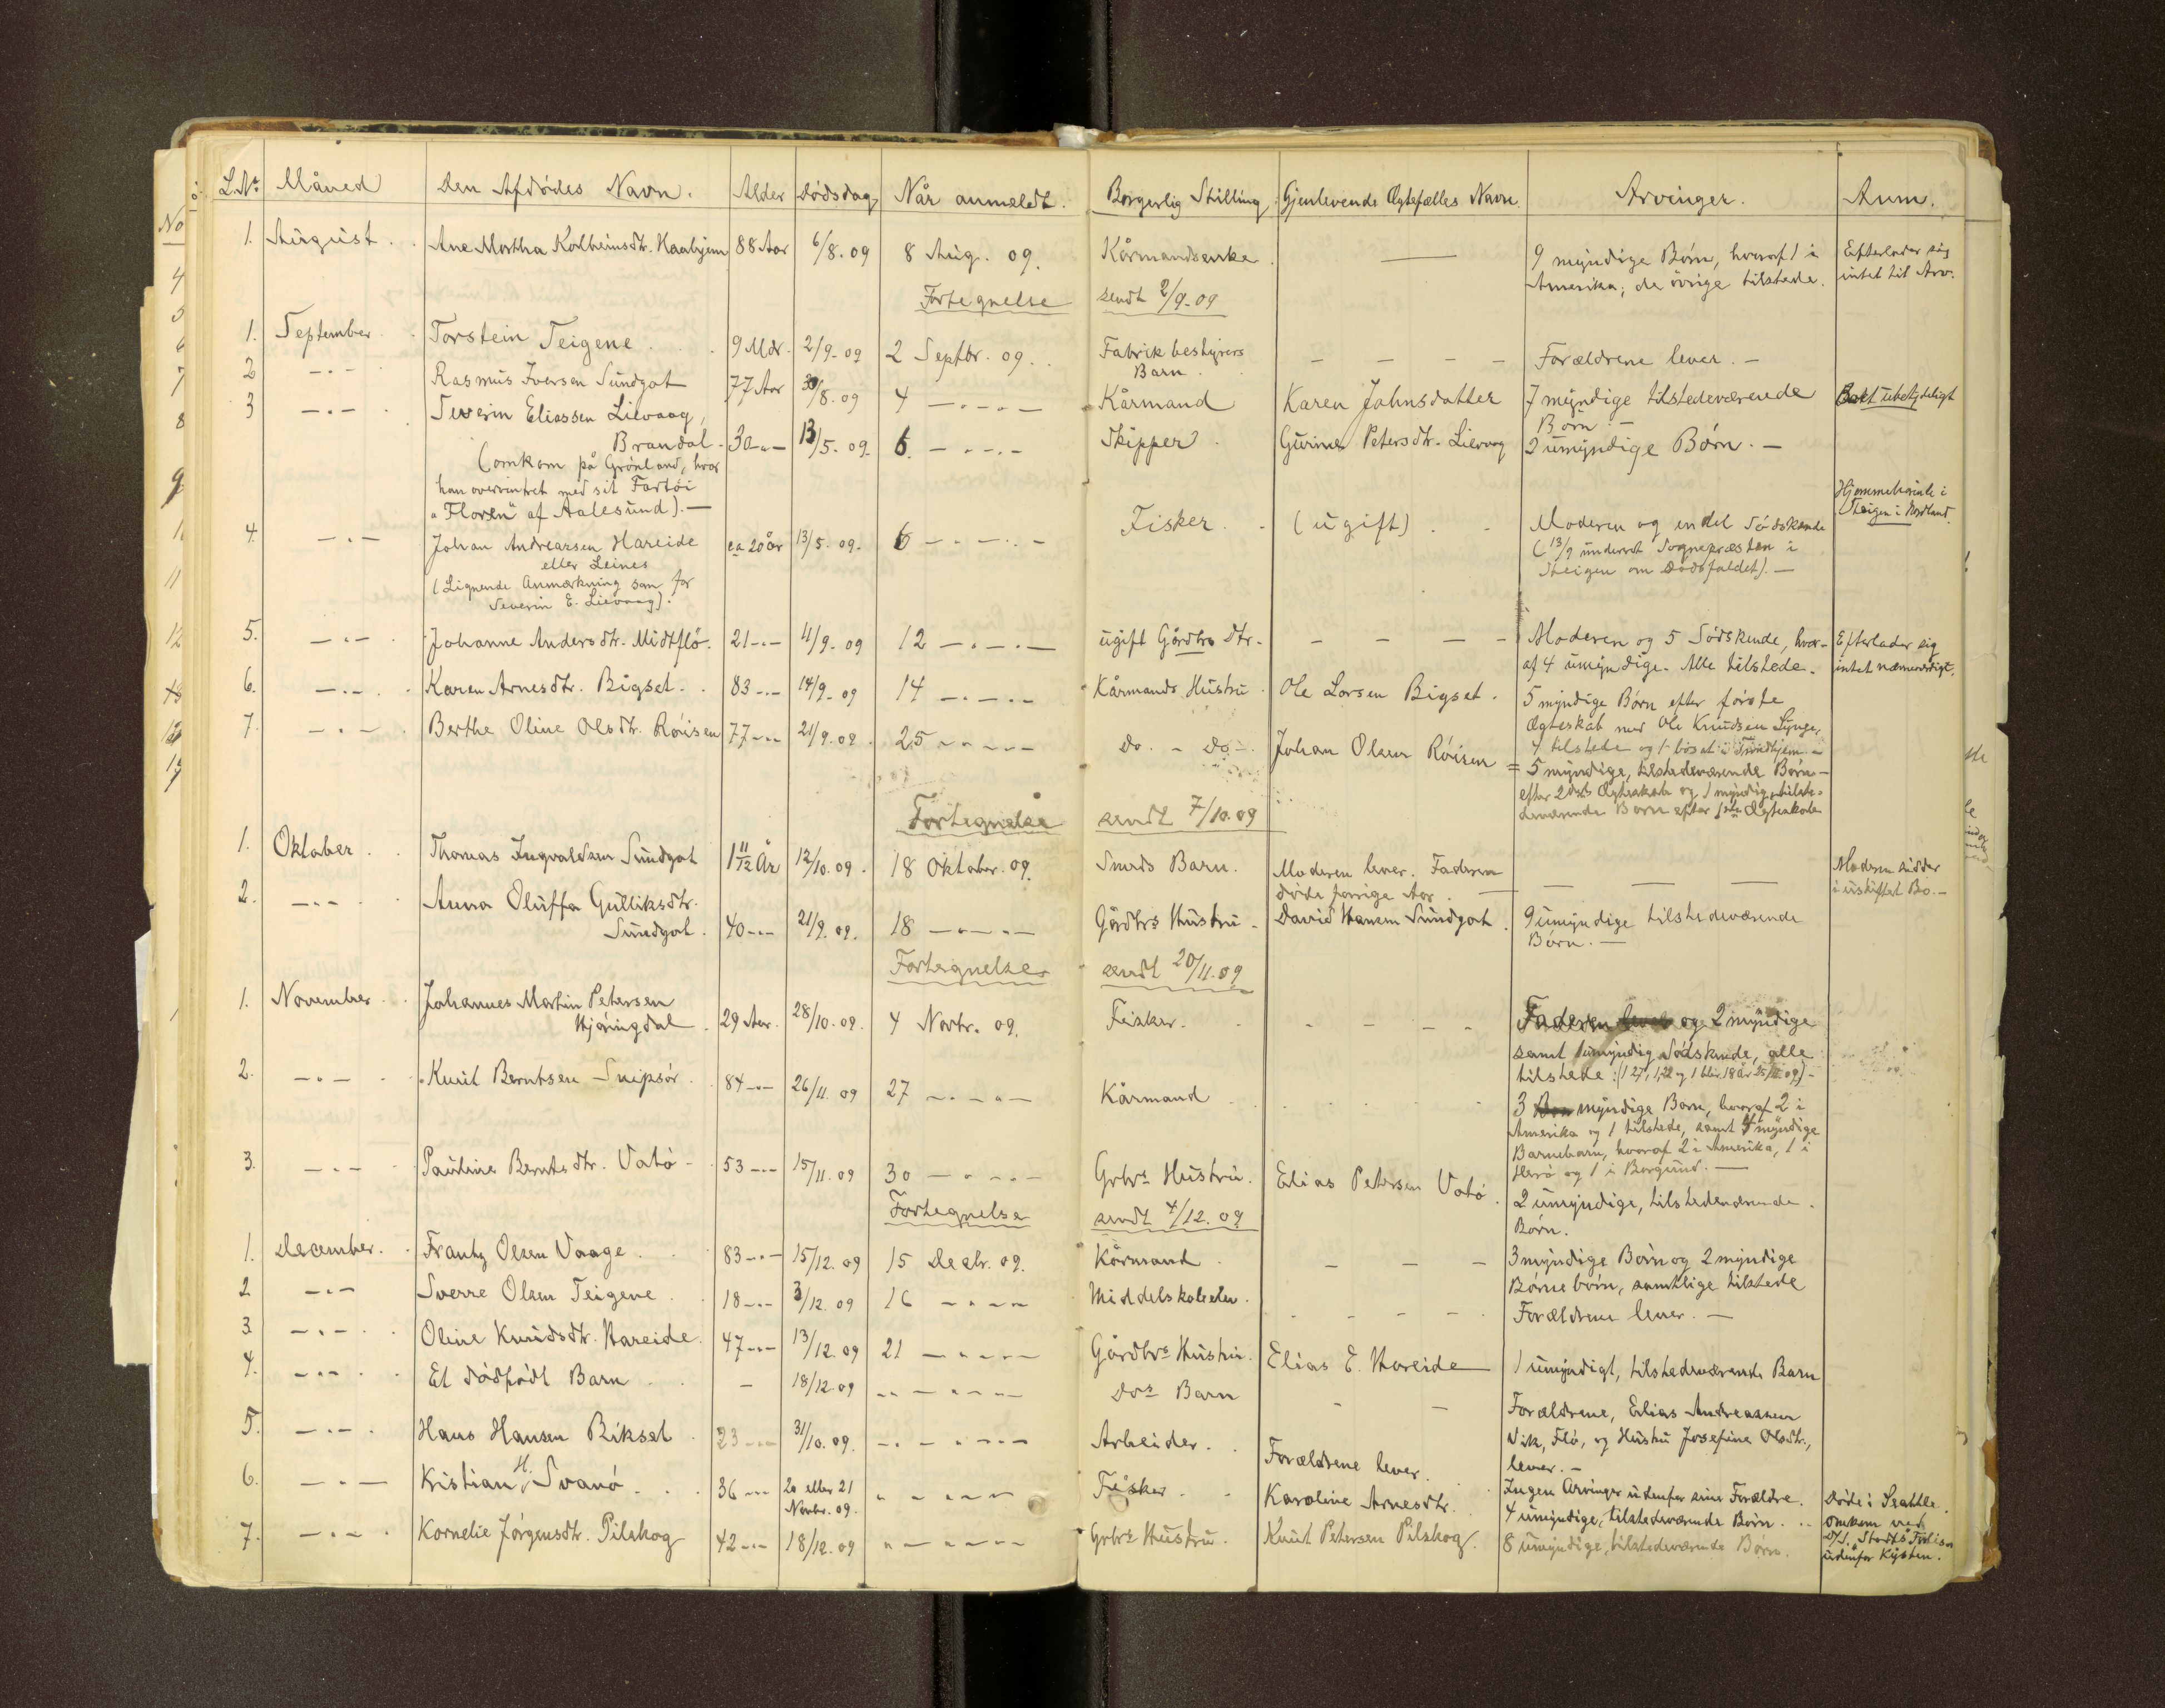 L.Nr. Måned Den Afdödes Navn. Alder Dödsdag Når anmeldt. Borgerlig Stilling Gjenlevende Ægtefælles Navn. Arvinger. Anm.
1. August Ane Martha Kolbeinsdtr. Haahjem 88 Aar 6/8. 09 8 Aug. 09. Kårmandsenke — 9 myndige Börn, hvoraf 1 i Efterlader sig
Amerika; de övrige tilstede. intet til Arv.
Fortegnelse sendt 2/9. 09
1. September Torstein Teigene 9 Mdr. 2/9. 09 2 Septbr. 09. Fabrikbestyrers Barn. — — — — Forældrene lever. —
2 —"— Rasmus Iversen Sundgot 77 Aar 30/8. 09 4 —"—"— Kårmand Karen Johnsdatter 7 myndige tilstedeværende Boet ubetydeligt
Börn. —
3 —"— Severin Eliassen Lievaag,
Brandal. 30 —"— 13/5. 09. 6. —"—"— Skipper. Gurine Petersdtr. Lievaag 2 umyndige Börn. —
(omkom på Grönland, hvor
han overvintret med sit Fartöi
"Floren" af Aalesund). —
4. —"— Johan Andreassen Hareide ca 20 år 13/5. 09. 6 —"—"— Fisker. (ugift) Moderen og en del Södskende Hjemmehörende i
eller Leines (13/9 underret Sognepræsten i Steigen i Nordland.
(Lignende Anmærkning som for Steigen om Dödsfaldet). —
Severin E. Lievaag).
5. —"— Johanne Andersdtr. Midtflö. 21 —"— 11/9. 09 12 —"—"— ugift Gårdbrs Dtr. — — — — Moderen og 5 Södskende, hvor- Efterlader sig
af 4 umyndige. Alle tilstede. intet nævneværdigt.
6. —"— Karen Arnesdtr. Bigset. 83 —"— 14/9. 09 14 —"—"— Kårmands Hustru. Ole Larsen Bigset. 5 myndige Börn efter förste
Ægteskab med Ole Knudsen Lynge,
4 tilstede og 1 bosat i Trondhjem. —
7. —"— Berthe Oline Olsdtr. Röisen 77 —"— 21/9. 09. 25 —"—"— Do. - Do -. Johan Olsen Röisen = 5 myndige, tilstedeværende Börn —
efter 2det Ægteskab og 1 myndig, tilste-
deværende Barn efter 1ste Ægteskab
Fortegnelse sendt 7/10. 09
1. Oktober Thomas Ingvaldsen Sundgot 1 11/12 År 12/10. 09. 18 Oktober. 09. Smeds Barn. Moderen lever. Faderen — — — Moderen sidder
döde forrige Aar. i uskiftet Bo. —
2. —"— Anna Oluffa Gulliksdtr.
Sundgot. 40 —"— 21/9. 09. 18 —"—"— Gårdbrs Hustru. David Hansen Sundgot. 9 umyndige tilstedeværende
Börn. —
Fortegnelse sendt 20/11. 09
1. November Johannes Martin Petersen
Hjöringdal. 29 Aar. 28/10. 09. 4 Novbr. 09. Fisker. - - - - Faderen lever og 2 myndige
samt 1 umyndig Södskende, alle
tilstede: (1 27, 1, 22 og 1 blir 18 år 25/12 09) —
2. —"— Knut Berntsen Snipsör. 84 —"— 26/11. 09 27 —"—"— Kårmand 3 myndige Barn, hvoraf 2 i
Amerika og 1 tilstede, samt 4 myndige
Barnebarn, hvoraf 2 i Amerika, 1 i
Herö og 1 i Borgund. —
3. —"— Pauline Berntsdtr. Vatö 53 —"— 15/11. 09 30 —"—"— Grbrs Hustru. Elias Petersen Vatö. 2 umyndige, tilstedeværende
Börn.
Fortegnelse sendt 4/12. 09
1. December. Frantz Olsen Vaage. 83 —"— 15/12. 09 15 Decbr. 09. Kårmand — — — 3 myndige Börn og 2 myndige
Börnebörn, samtlige tilstede
2 —"— Sverre Olsen Teigene. 18 —"— 3/12. 09 16 —"—"— Middelskoleelev. - - - - Forældrene lever. —
3. —"— Oline Knudsdtr. Hareide. 47 —"— 13/12. 09 21 —"—"— Gårdbrs Hustru. Elias E. Hareide 1 umyndigt, tilstedeværende Barn
4. —"— Et dödfödt Barn — 18/12. 09 —"—"— Dos Barn - - Forældrene, Elias Andreassen
Vik, Flö, og Hustru Josefine Olsdtr.,
lever. —
5. —"— Hans Hansen Bikset. 23 —"— 31/10. 09. —"—"— Arbeider. Forældrene lever. Ingen Arvinger udenfor sine Forældre. Döde i Seattle.
6. —"— Kristian H. Svanö. 36 —"— 20 eller 21 Novbr. 09. —"—"— Fisker. Karoline Arnesdtr. 4 umyndige, tilstedeværende Börn. Omkom ved
D/S. "Stadts" Forlis
udenfor Kysten.
7. —"— Kornelie Jörgensdtr. Pilskog 42 —"— 18/12. 09 —"—"— Grbrs Hustru. Knut Petersen Pilskog. 8 umyndige, tilstedeværende Börn.